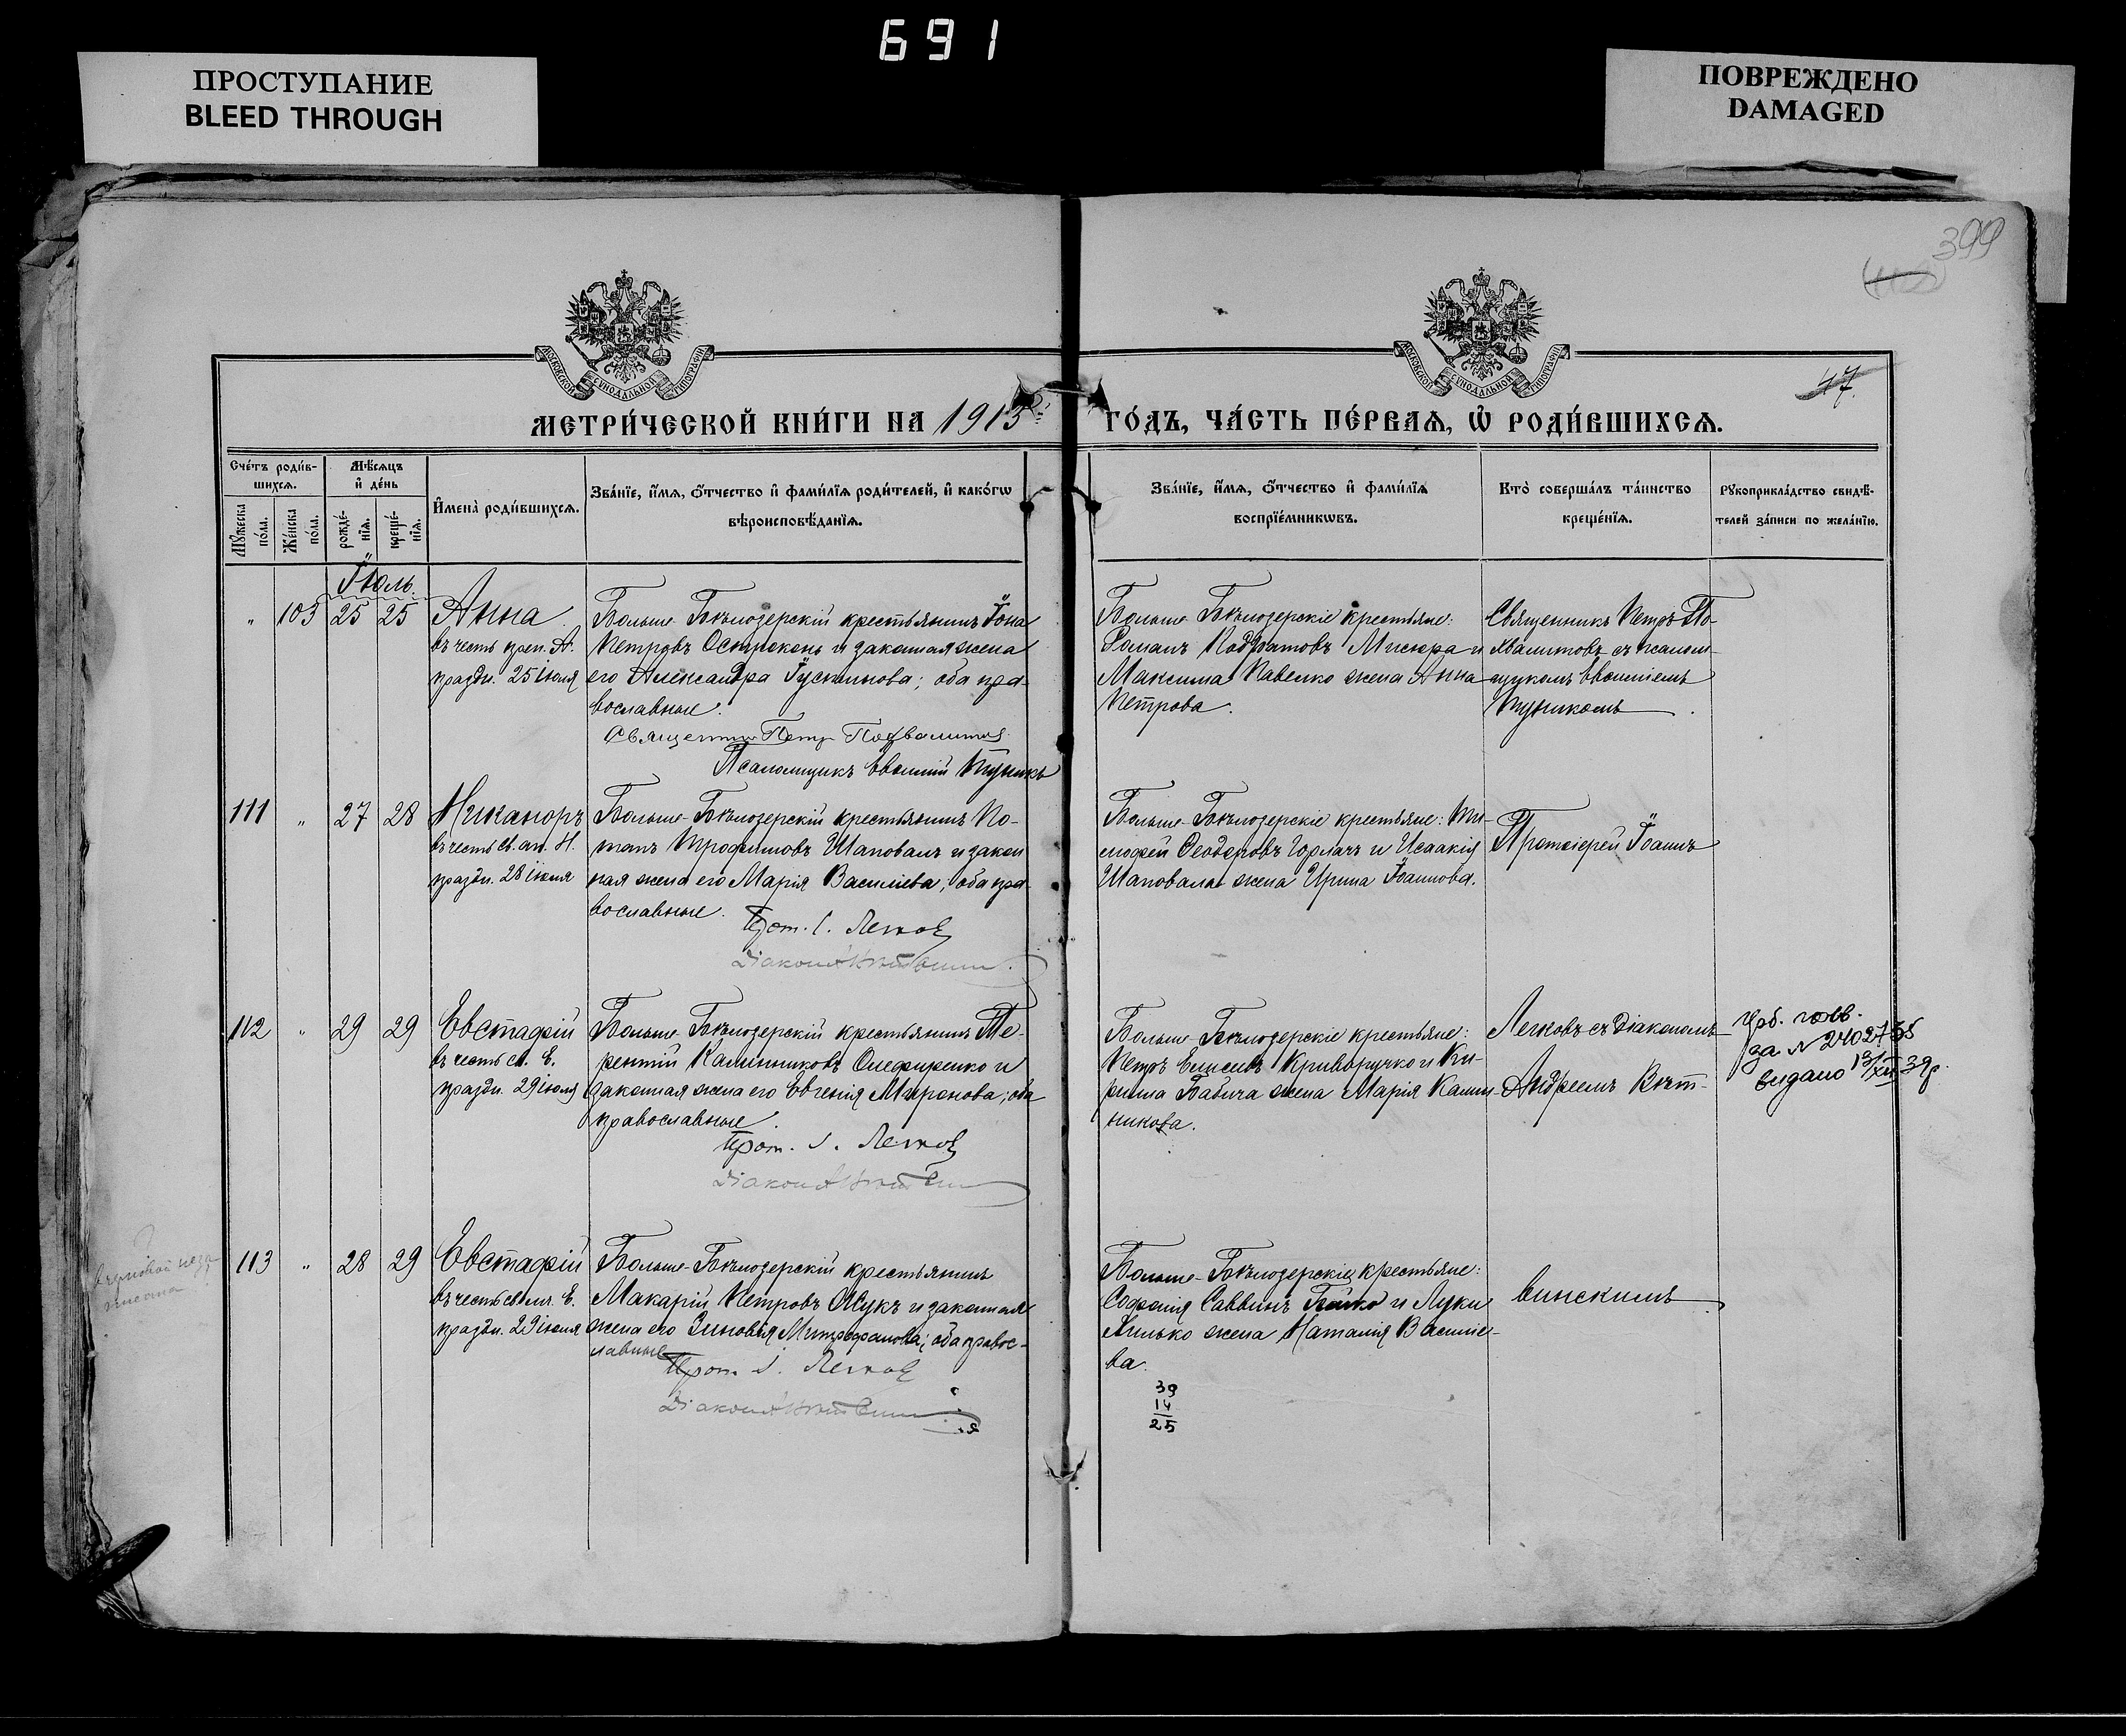 691
ПРОСТУПАНИЕ
BLEED THROUGH
ПОВРЕЖДЕНО
DAMAGED
399
47.
МОСКОВСКОЙ СѴНОДАЛЬНОЙ ТИПОГРАФІИ
МОСКОВСКОЙ СѴНОДАЛЬНОЙ ТИПОГРАФІИ
МЕТРИ́ЧЕСКОЙ КНИ́ГИ НА 1913 ГО́ДЪ, ЧА́СТЬ ПЕ́РВАѦ, Ѽ РОДИ́ВШИХСѦ.
Сче́тъ роди́в-
шихсѧ.
Мꙋжеска по́ла.
Же́нска по́ла.
Мѣ́сѧцъ
и҆ де́нь
рожде́-
нїѧ.
креще́-
нїѧ.
И҆мена̀ роди́вшихсѧ.
Зва́нїе, и҆́мѧ, ѻ҆́тчество и҆ фами́лїѧ роди́телей, и҆ како́гѡ
вѣроисповѣ́данїѧ.
Зва́нїе, и҆́мѧ, ѻ҆́тчество и҆ фами́лїѧ
воспрїе́мникѡвъ.
Кто̀ соверша́лъ та́инство
креще́нїѧ.
Рꙋкоприкла́дство свидѣ́-
телей за́писи по жела́нїю.
Іюль.
" 105 25 25
Анна
въ честь преп. А.
праздн. 25 іюля
Больше-Бѣлозерскій крестьянинъ Іона
Петровъ Остроконь и законная жена
его Александра Іустинова; оба пра-
вославные.
Священник Петр Похвалитов
Псаломщикъ Евфимій Туникъ
Больше-Бѣлозерскіе крестьяне:
Романъ Кодратовъ Мисюра и
Максима Павенко жена Анна
Петрова.
Священникъ Петръ По-
хвалитовъ съ псалом-
щикомъ Евфиміемъ
Туникомъ.
111 " 27 28
Никаноръ
въ честь св. ап. Н.
праздн. 28 іюля
Больше-Бѣлозерскій крестьянинъ По-
тапъ Трофимовъ Шаповалъ и закон
ная жена его Марія Василіева; оба пра-
вославные.
Прот. І. Легков
Діаконъ А Вѣтвинск
Больше-Бѣлозерскіе крестьяне: Ти-
мофей Ѳеодоровъ Горлачъ и Исаакія
Шаповала жена Ирина Іоаннова.
Протоіерей Іоаннъ
112 " 29 29
Евстафій
въ честь св. Е.
праздн. 29 іюля
Больше-Бѣлозерскій крестьянинъ Те-
рентій Калинниковъ Олефиренко и
законная жена его Евгенія Миронова; оба
православные.
Прот. І. Легков
Діаконъ А Вѣтвинск
Больше-Бѣлозерскіе крестьяне:
Петръ Криворучко и Ки-
рилла Бабича жена Марія Калин-
никова.
Легковъ съ діакономъ
Андреемъ Вѣт-
за № 2402738
видано 13/XII 39 р.
113 " 28 29
Евстафій
въ честь св. Е.
праздн. 29 іюля
Больше-Бѣлозерскій крестьянинъ
Макарій Петровъ Жукъ и законная
жена его Зиновія Митрофанова; оба правос-
лавные
Прот. І. Легков
Діаконъ А Вѣтвинск
Больше-Бѣлозерскіе крестьяне:
Софонія Саввинъ Бойко и Луки
жена Наталія Василіе-
ва.
39
14
25
винскимъ